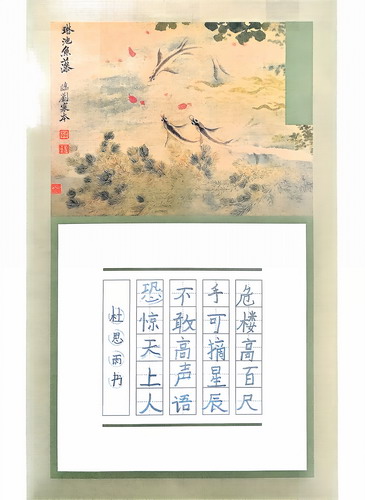 琳池魚藻
臨劉寀本
危楼高百尺
手可摘星辰
不敢高声语
恐惊天上人
杜思雨书